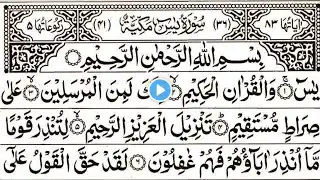 اٰيَاتُهَا ٨٣ (٣٦) سُوْرَةُ يٰسٓ مَكِّيَّةٌ (٤١) رُكُوْعَاتُهَا ٥
بِسْمِ اللّٰهِ الرَّحْمٰنِ الرَّحِيْمِ
يٰسٓ ۝١ وَالْقُرْاٰنِ الْحَكِيْمِ ۝٢ لَمِنَ الْمُرْسَلِيْنَ ۝٣ عَلٰى
صِرَاطٍ مُّسْتَقِيْمٍ ۝٤ تَنْزِيْلَ الْعَزِيْزِ الرَّحِيْمِ ۝٥ لِتُنْذِرَ قَوْمًا
مَّآ اُنْذِرَ اٰبَآؤُهُمْ فَهُمْ غٰفِلُوْنَ ۝٦ لَقَدْ حَقَّ الْقَوْلُ عَلٰٓى